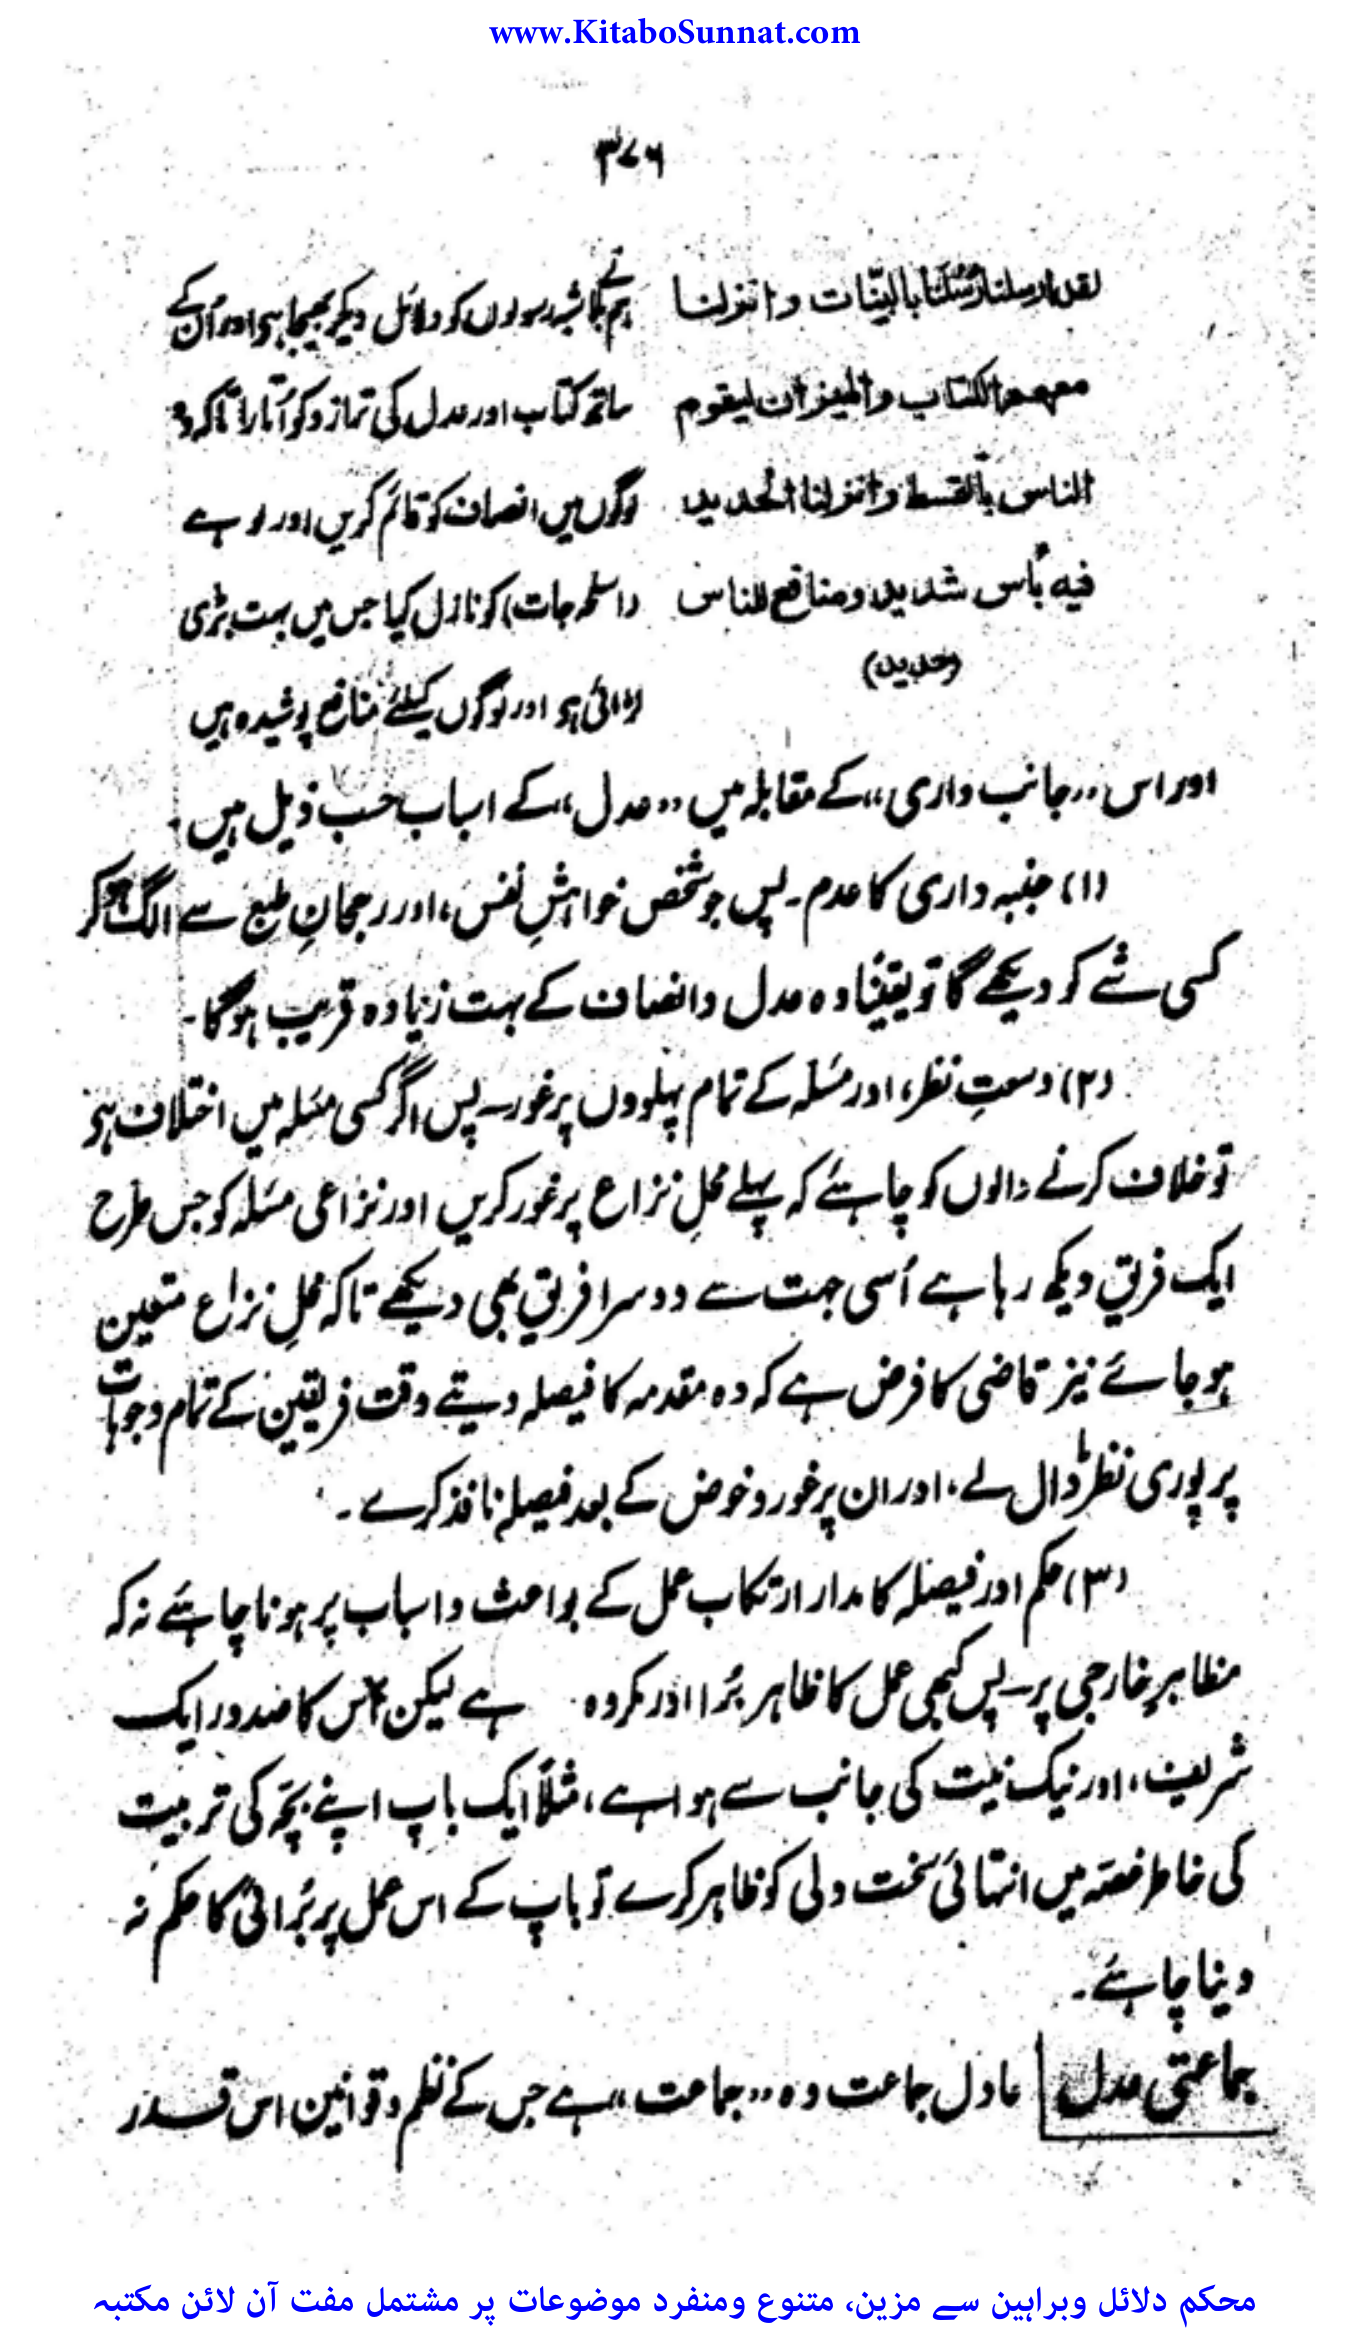 www.KitaboSunnat.com
۳۷۶
لقد ارسلنا رسلنا بالبیّنات و انزلنا
ہم نے بلا شبہ رسولوں کو دلائل دیکر بھیجا ہے اور اُن کے
معهم الکتاب والمیزان لیقوم
ساتھ کتاب اور عدل کی ترازو کو اُتارا تاکہ وہ
الناس بالقسط و انزلنا الحدید
لوگوں میں انصاف کو قائم کریں اور لوہے
فیه بأس شدید و منافع للناس
(اسلحہ جات) کو نازل کیا جس میں بہت بڑی
(حدید)
لڑائی ہے اور لوگوں کیلئے منافع پوشیدہ ہیں
اور اس ،،جانب داری،، کے مقابلہ میں ،،عدل،، کے اسباب حسب ذیل ہیں۔
(۱) جنبہ داری کا عدم۔ پس جو شخص خواہشِ نفس، اور رجحانِ طبع سے الگ ہو کر
کسی شے کو دیکھے گا تو یقیناً وہ عدل و انصاف کے بہت زیادہ قریب ہوگا۔
(۲) وسعتِ نظر، اور مسئلہ کے تمام پہلوؤں پر غور۔ پس اگر کسی مسئلہ میں اختلاف ہو
تو خلاف کرنے والوں کو چاہئے کہ پہلے محلِ نزاع پر غور کریں اور نزاعی مسئلہ کو جس طرح
ایک فریق دیکھ رہا ہے اُسی جہت سے دوسرا فریق بھی دیکھے تاکہ محلِ نزاع متعین
ہو جائے نیز قاضی کا فرض ہے کہ وہ مقدمہ کا فیصلہ دیتے وقت فریقین کے تمام وجوہات
پر پوری نظر ڈال لے، اور ان پر غور و خوض کے بعد فیصلہ نافذ کرے۔
(۳) حکم اور فیصلہ کا مدار ارتکاب عمل کے بواعث و اسباب پر ہونا چاہئے نہ کہ
مظاہرِ خارجی پر۔ پس کبھی عمل کا ظاہر بُرا اور مکروہ ہے لیکن اس کا صدور ایک
شریف، اور نیک نیت کی جانب سے ہوا ہے، مثلاً ایک باپ اپنے بچّہ کی تربیت
کی خاطر غصہ میں انتہائی سخت دلی کو ظاہر کرے تو باپ کے اس عمل پر بُرائی کا حکم نہ
دینا چاہئے۔
جماعتی عدل عادل جماعت وہ ،،جماعت،، ہے جس کے نظم و قوانین اس قدر
محکم دلائل وبراہین سے مزین، متنوع ومنفرد موضوعات پر مشتمل مفت آن لائن مکتبہ